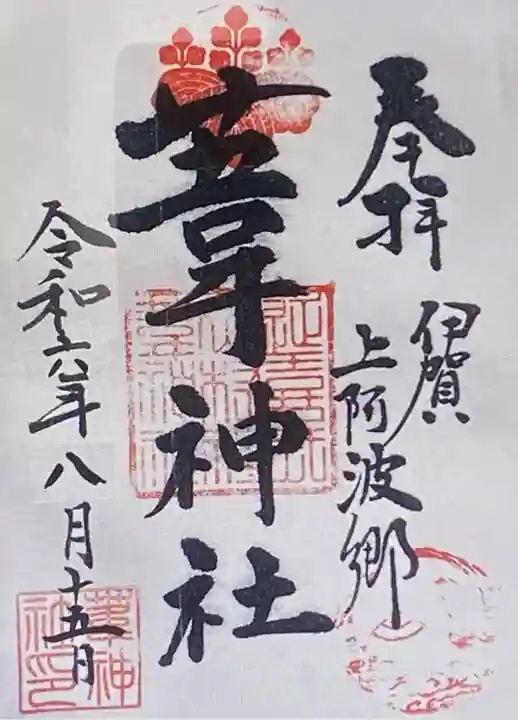 奉拝
伊賀
上阿波郷
葦神社
令和六年八月十五日
葦神
社印